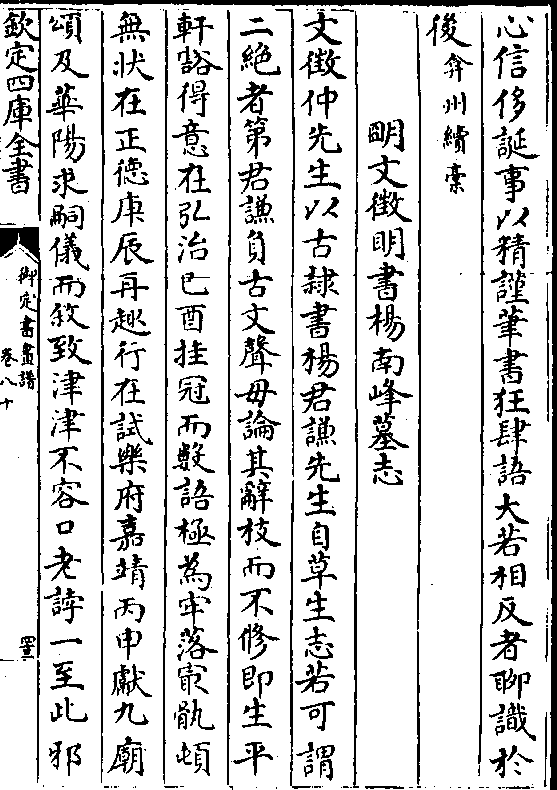 心信侈誕事以精謹筆書狂肆語大若相反者聊識於
後弇州續稾
明文徵明書楊南峰墓志
文徵仲先生以古隸書楊君謙先生自草生志若可謂
二絶者第君謙負古文聲毋論其辭枝而不修即生平
軒豁得意在弘治己酉挂冠而數語極為牢落最骯頓
無狀在正德庚辰再趣行在試樂府嘉靖丙申獻九廟
頌及華陽求嗣儀而敘致津津不容口老誖一至此邪
欽定四庫全書
御定書畫譜
卷八十